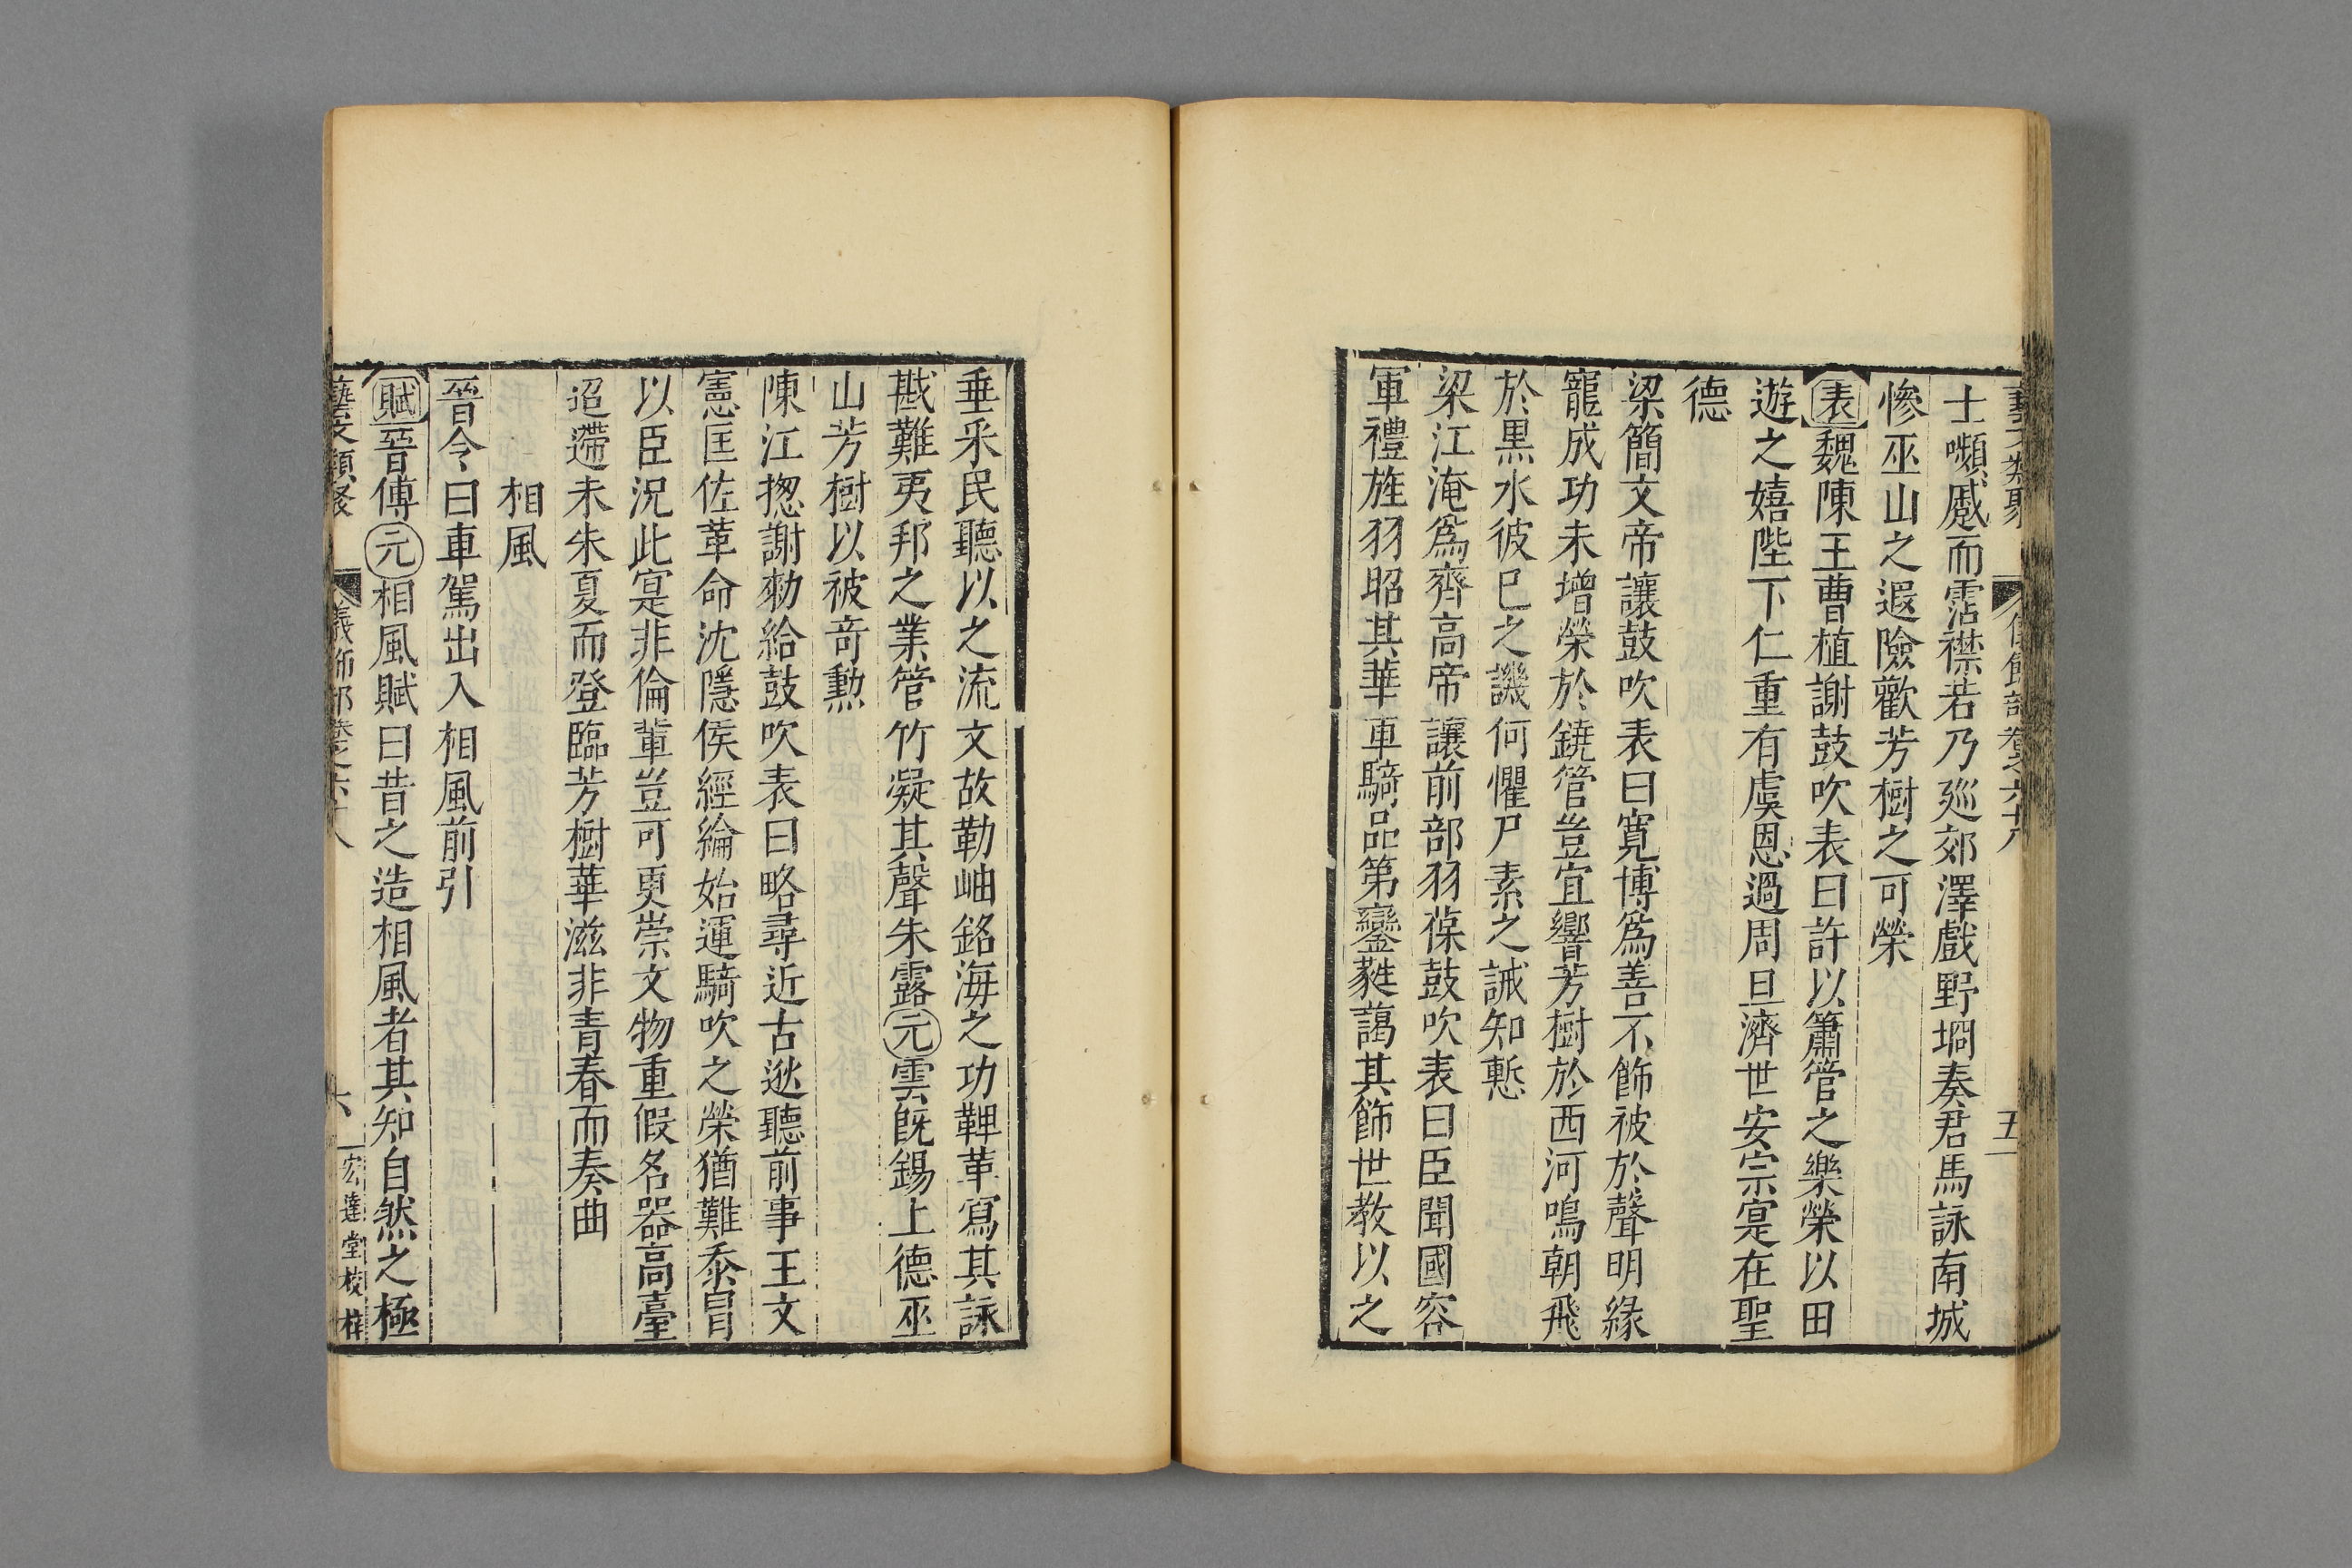 士嚬戚而霑襟若乃廵郊澤戲野坰奏君馬詠南城
慘巫山之遐險歡芳樹之可榮
表魏陳王曹植謝鼓吹表曰許以簫管之樂榮以田
遊之嬉陛下仁重有虞恩過周旦濟世安宗寔在聖
德
梁簡文帝讓鼓吹表曰寛博爲善不飾被於聲明緣
寵成功未增榮於鐃管豈宜響芳樹於西河鳴朝飛
於黒水彼巳之譏何懼尸素之誡知慙
梁江淹爲齊高帝讓前部羽葆鼓吹表曰臣聞國容
軍禮旌羽昭其華車騎品第鑾蕤藹其飾世教以之
垂釆民聽以之流文故勒岫銘海之功鞞革寫其詠
戡難夷邦之業管竹凝其聲朱露元雲旣錫上德巫
山芳樹以被奇勲
陳江揔謝勑給鼓吹表曰略尋近古逖聽前事王文
憲匡佐革命沈隱侯經綸始運騎吹之榮猶難忝冒
以臣況此寔非倫輩豈可更崇文物重假名器高臺
迢遰未朱夏而登臨芳樹華滋非青春而奏曲
相風
晉令曰車駕出入相風前引
賦晉傅元相風賦曰昔之造相風者其知自然之極
藝文類聚 儀飾部卷之六十八 六 宏達堂校梓